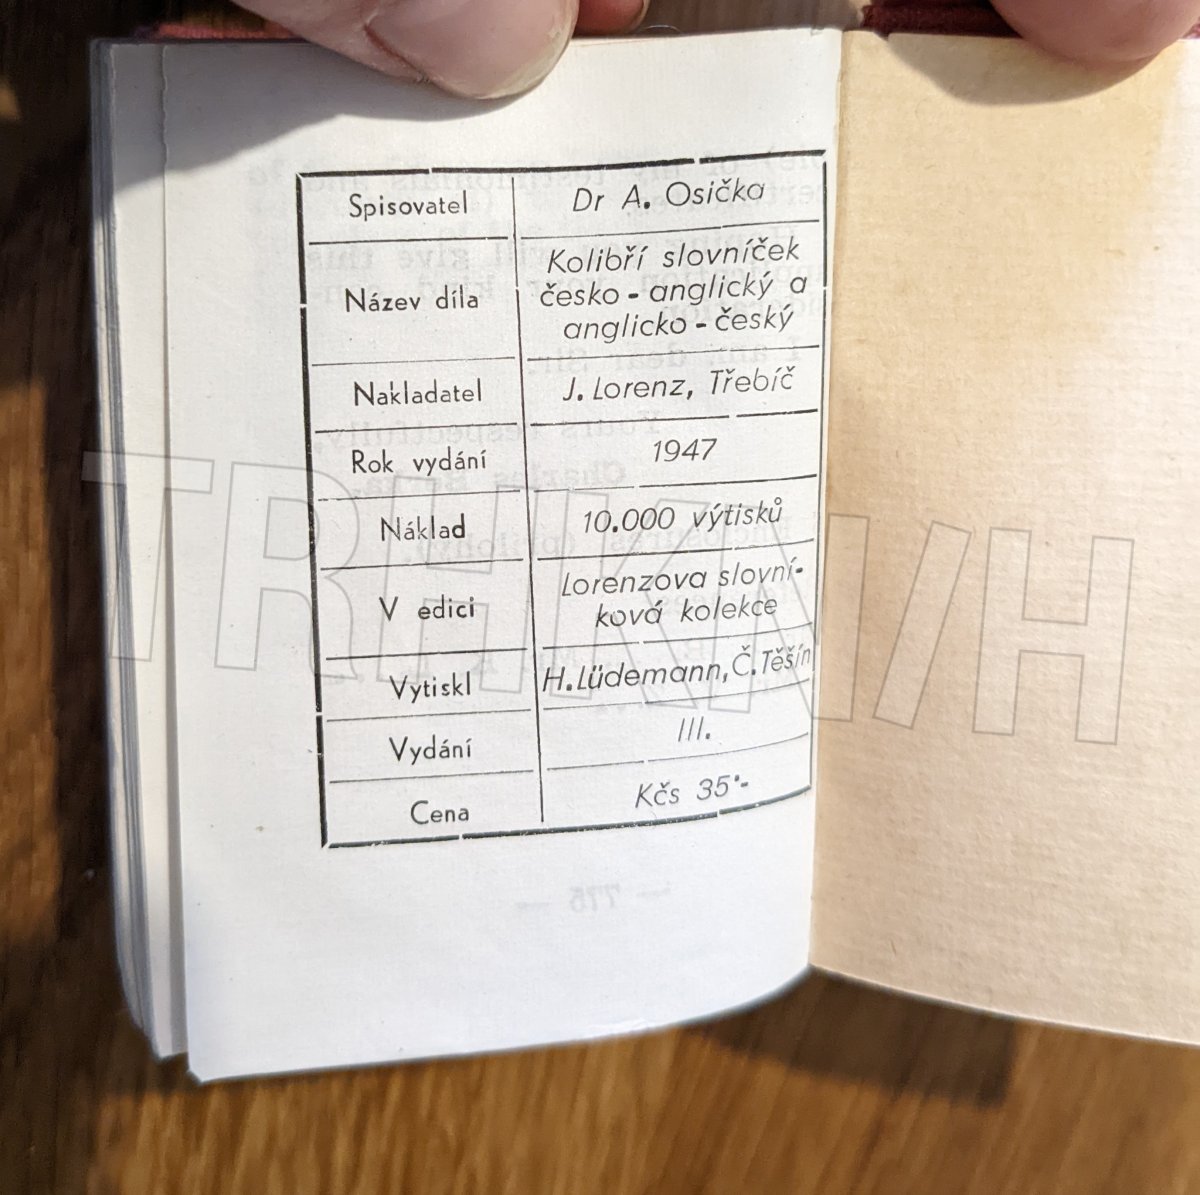 Spisovatel Dr A. Osička
Název díla Kolibří slovníček
česko - anglický a
anglicko - český
Nakladatel J. Lorenz, Třebíč
Rok vydání 1947
Náklad 10.000 výtisků
V edici Lorenzova slovní-
ková kolekce
Vytiskl H. Lüdemann, Č. Těšín
Vydání III.
Cena Kčs 35·-
— 775 —
TRHKNIH